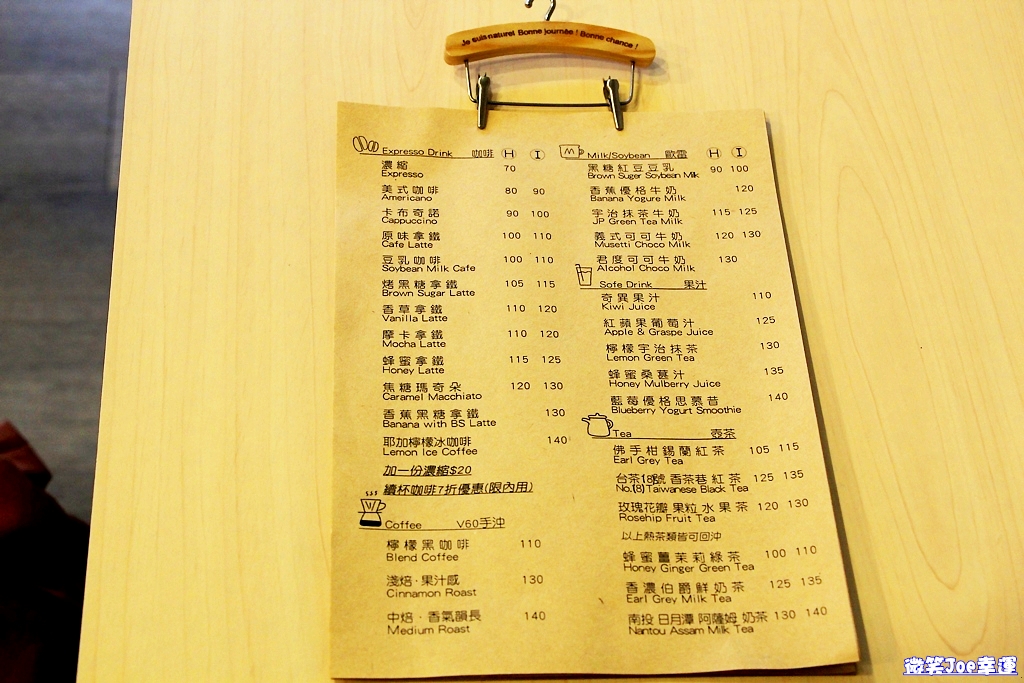 Je suis naturel Bonne journée ! Bonne chance !
Expresso Drink 咖啡 H I
濃縮 70
Expresso
美式咖啡 80 90
Americano
卡布奇諾 90 100
Cappuccino
原味拿鐵 100 110
Cafe Latte
豆乳咖啡 100 110
Soybean Milk Cafe
烤黑糖拿鐵 105 115
Brown Sugar Latte
香草拿鐵 110 120
Vanilla Latte
摩卡拿鐵 110 120
Mocha Latte
蜂蜜拿鐵 115 125
Honey Latte
焦糖瑪奇朵 120 130
Caramel Macchiato
香蕉黑糖拿鐵 130
Banana with BS Latte
耶加檸檬冰咖啡 140
Lemon Ice Coffee
加一份濃縮$20
續杯咖啡7折優惠(限內用)
Coffee V60手沖
檸檬黑咖啡 110
Blend Coffee
淺焙·果汁感 130
Cinnamon Roast
中焙·香氣韻長 140
Medium Roast
Milk/Soybean 歐蕾 H I
黑糖紅豆豆乳 90 100
Brown Suger Soybean Milk
香蕉優格牛奶 120
Banana Yogure Milk
宇治抹茶牛奶 115 125
JP Green Tea Milk
義式可可牛奶 120 130
Musetti Choco Milk
君度可可牛奶 130
Alcohol Choco Milk
Sofe Drink 果汁
奇異果汁 110
Kiwi Juice
紅蘋果葡萄汁 125
Apple & Graspe Juice
檸檬宇治抹茶 130
Lemon Green Tea
蜂蜜桑葚汁 135
Honey Mulberry Juice
藍莓優格思慕昔 140
Blueberry Yogurt Smoothie
Tea 壺茶
佛手柑錫蘭紅茶 105 115
Earl Grey Tea
台茶18號香茶巷紅茶 125 135
No.(18)Taiwanese Black Tea
玫瑰花瓣果粒水果茶 120 130
Rosehip Fruit Tea
以上熱茶類皆可回沖
蜂蜜薑茉莉綠茶 100 110
Honey Ginger Green Tea
香濃伯爵鮮奶茶 125 135
Earl Grey Milk Tea
南投日月潭阿薩姆奶茶 130 140
Nantou Assam Milk Tea
微笑Joe幸運